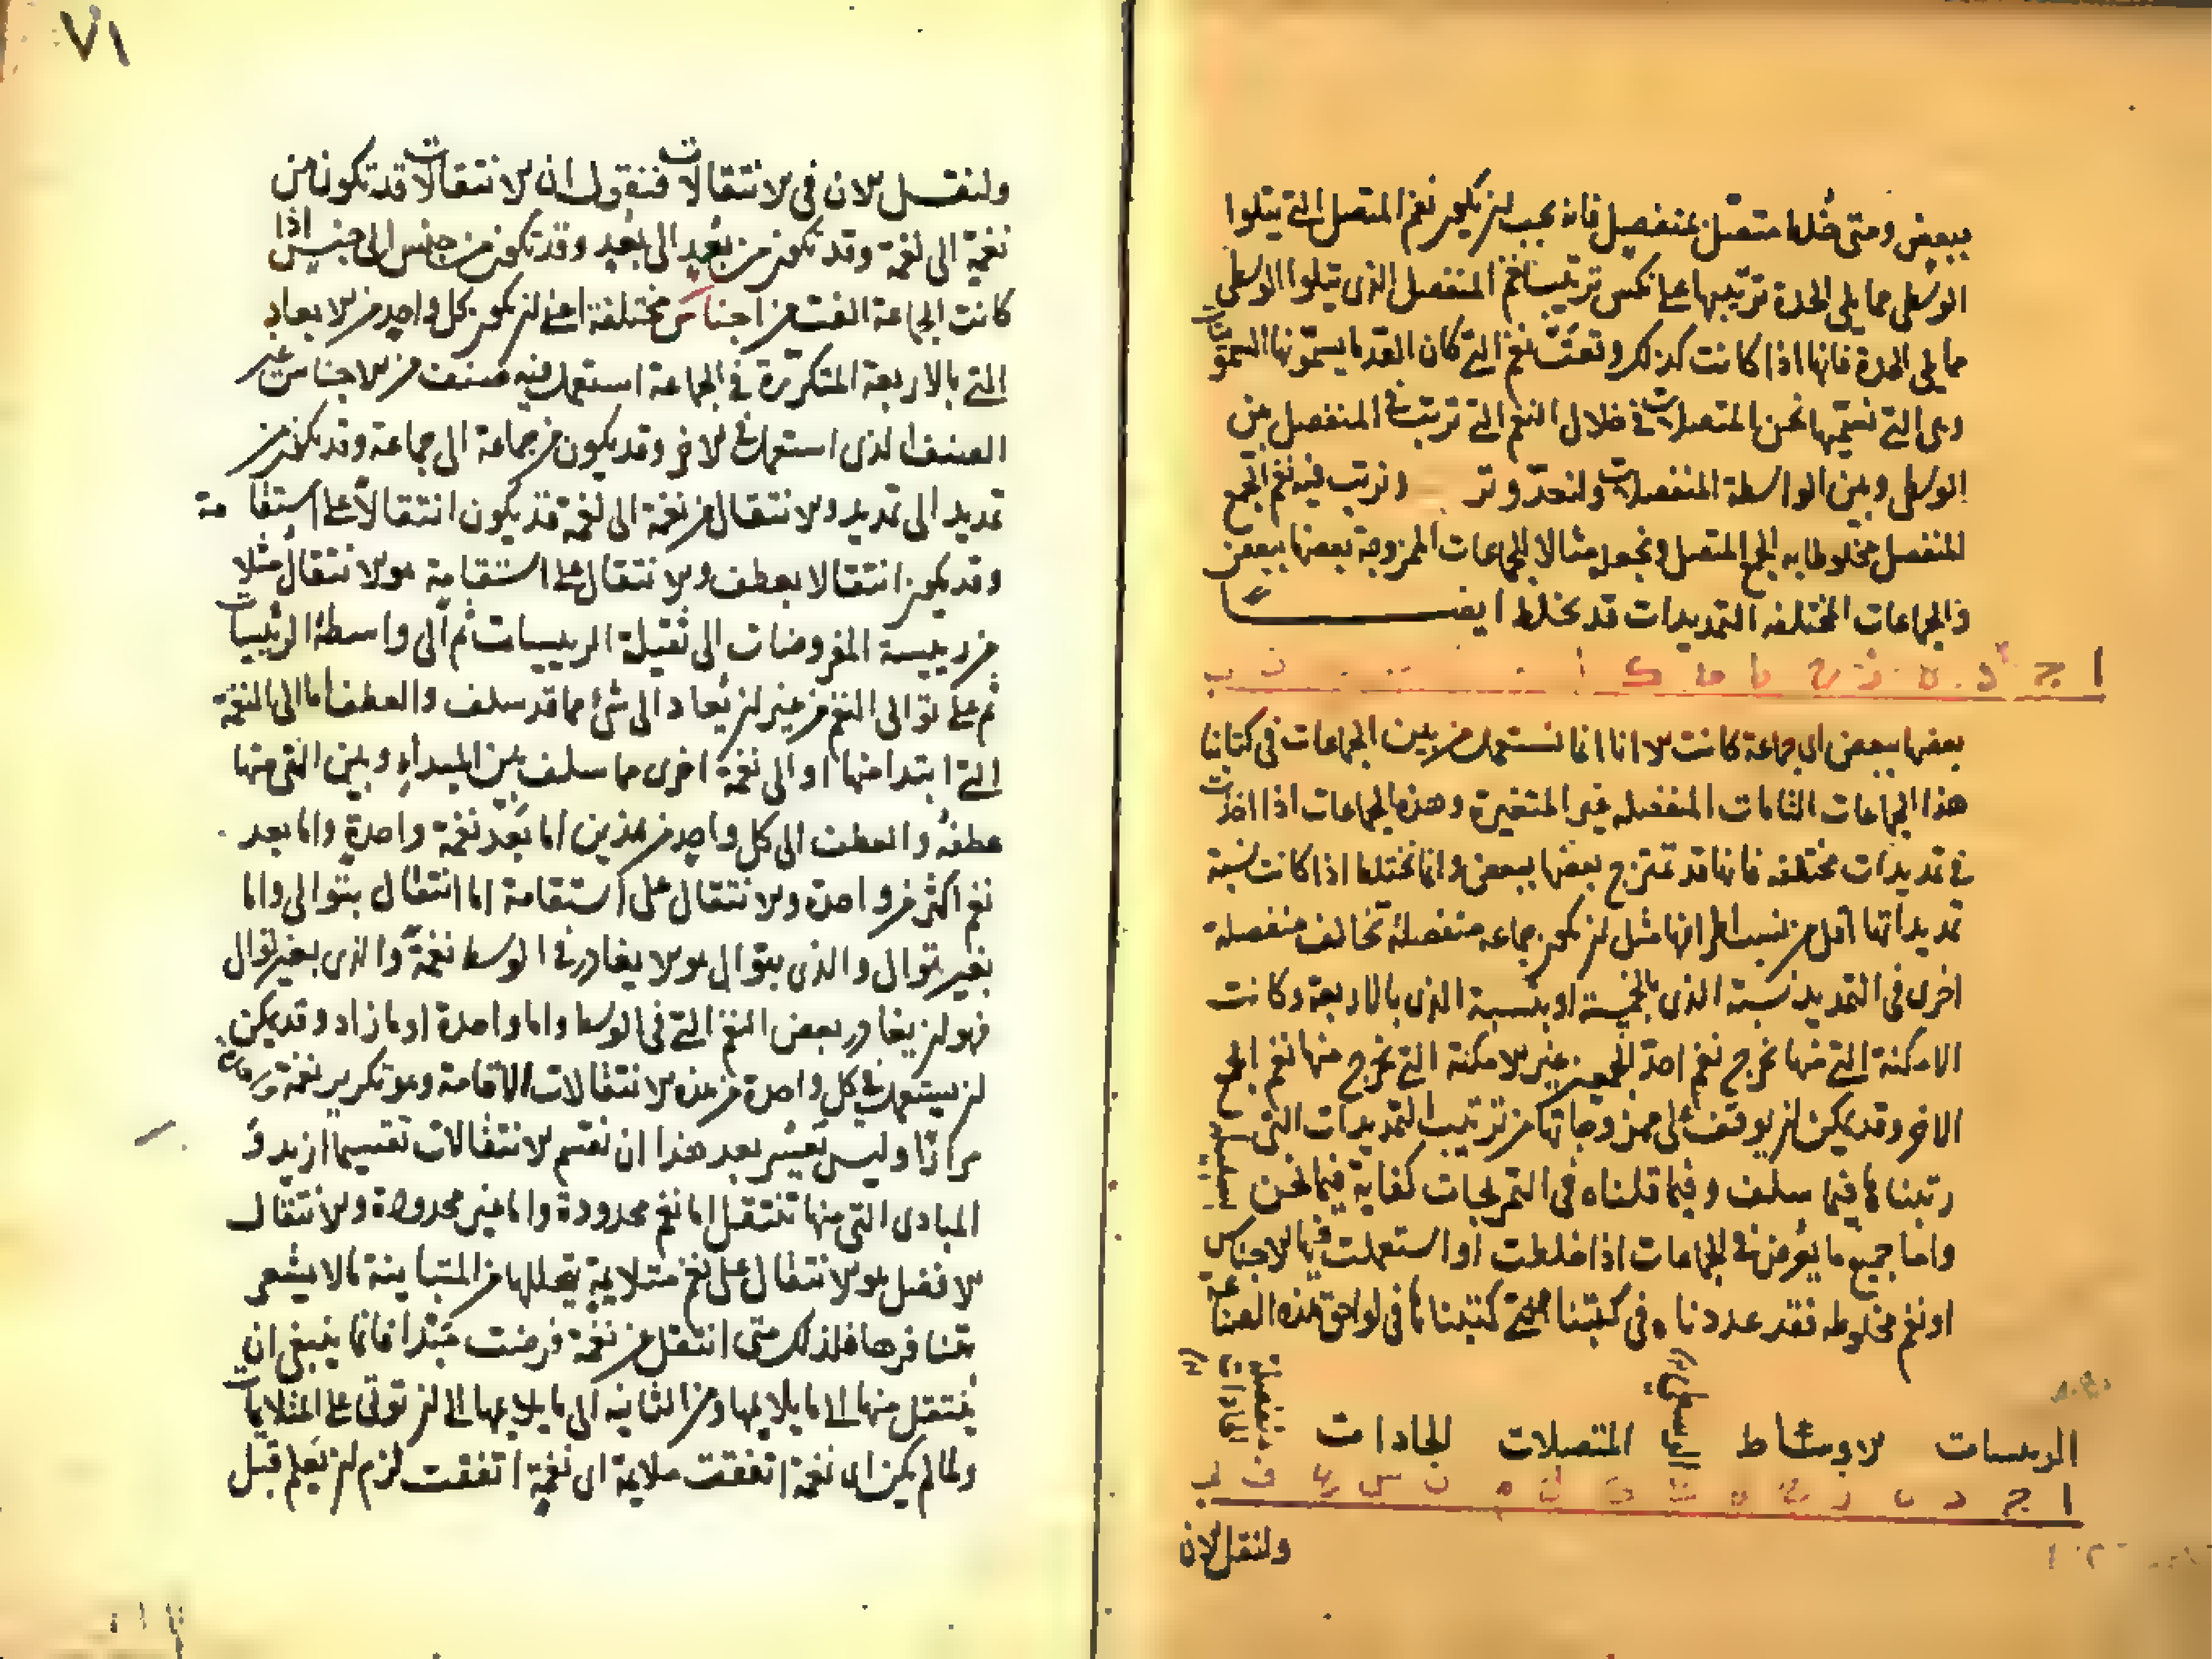 ببعض ومتى خلط متصل بمنفصل فانه يجب ان يكون نغم المتصل التي يتلوا
الوسطى مما يلي الحدة ترتيبها على عكس ترتيب نغم المنفصل الذي يتلوا الوسطى
مما يلي الحدة فانها اذا كانت كذلك وقعت نغم التي كان القدما يسمونها
وهي التي نسميها نحن المتصلات في خلال النغم التي ترتب في المنفصل بين
الوسطى وبين الواسطة المنفصلات ولنحد وتر ونرتب فيه نغم الجمع
المنفصل مخلوطا به الجمع المتصل ونجعله مثالا للجماعات الممزوجة بعضها ببعض
والجماعات المختلفه التمديدات قد تخلط ايضا
بعضها ببعض اي جماعة كانت لانا انما نستعمل من بين الجماعات في كتابنا
هذا الجماعات التامات المنفصله غير المتغيرة وهذه الجماعات اذا اخذت
في تمديدات مختلفه فانها قد تمتزج بعضها ببعض وانما تختلط اذا كانت نسبة
تمديداتها اقل من نسب اطرافها مثل ان يكون جماعه منفصلة تخالف منفصلة
اخرى في التمديد نسبة الذي بالخمسة او بنسبة الذي بالاربعة وكانت
الامكنة التي منها تخرج نغم احد الجمعين غير الامكنة التي تخرج منها نغم الجمع
الاخر وقد يمكن ان يوقف على ممزوجاتها من ترتيب التمديدات التي
رتبناها فيما سلف وفيما قلناه في التمزيجات كفاية فيما نحن
واما جميع ما يعرض في الجماعات اذا خلطت او استعملت فيها الاجناس
او نغم مخلوطه فقد عددناه في كتبنا التي كتبناها في لواحق هذه الصناعة
الرييسات الاوساط الوسطى المتصلات الحادات
ولنقل الان
٧١
ولنقل الان في الانتقالات فنقول ان الانتقالات قد تكون من
نغمة الى نغمة وقد تكون من بعد الى بعد وقد تكون من جنس الى جنس اذا
كانت الجماعة الفت من اجناس مختلفة اعني ان يكون كل واحد من الابعاد
التي بالاربعة المتكررة في الجماعة استعمل فيه صنف من الاجناس غير
الصنف الذي استعمل في الاخر وقد يكون من جماعة الى جماعة وقد يكون من
تمديد الى تمديد والانتقال من نغمة الى نغمة قد يكون انتقالا على استقامة
وقد يكون انتقالا بعطف والانتقال على استقامة هو الانتقال مثلا
من رييسة المفروضات الى ثقيلة الرييسات ثم الى واسطة الرئيسات
ثم على توالي النغم من غير ان يعاد الى شئ مما قد سلف والعطف اما الى النغمة
التي ابتدا منها او الى نغمة اخرى مما سلف بين المبدأ وبين التي منها
عطف والعطف الى كل واحد من هذين اما بعد نغمة واحدة واما بعد
نغم اكثر من واحدة والانتقال على استقامة اما انتقال بتوالى واما
بغير توال والذي بتوال هو الا يغادر في الوسط نغمة والذي بغير توال
فهو ان يغادر بعض النغم التي في الوسط واما واحدة او ما زاد وقد يمكن
ان يستعمل في كل واحدة من هذه الانتقالات الاقامة وهو تكرير نغمة
مرارا وليس يعسر بعد هذا ان نقسم الانتقالات تقسيما ازيد و
المبادي التي منها تنتقل اما نغم محدودة واما غير محدودة والانتقال
الافضل هو الانتقال على نغم متلايمة يتخللها من المتباينة ما لا يشعر
بتنافرها فلذلك متى انتقل من نغمة فرضت مبتدا فانما ينبغي ان
ينتقل منها الى ما يلايمها ومن الثانيه الى ما يلايمها الى ان توتى على المتلايمات
ولما لم يكن اي نغمة اتفقت ملايمة اي نغمة اتفقت لزم ان يعلم قبل